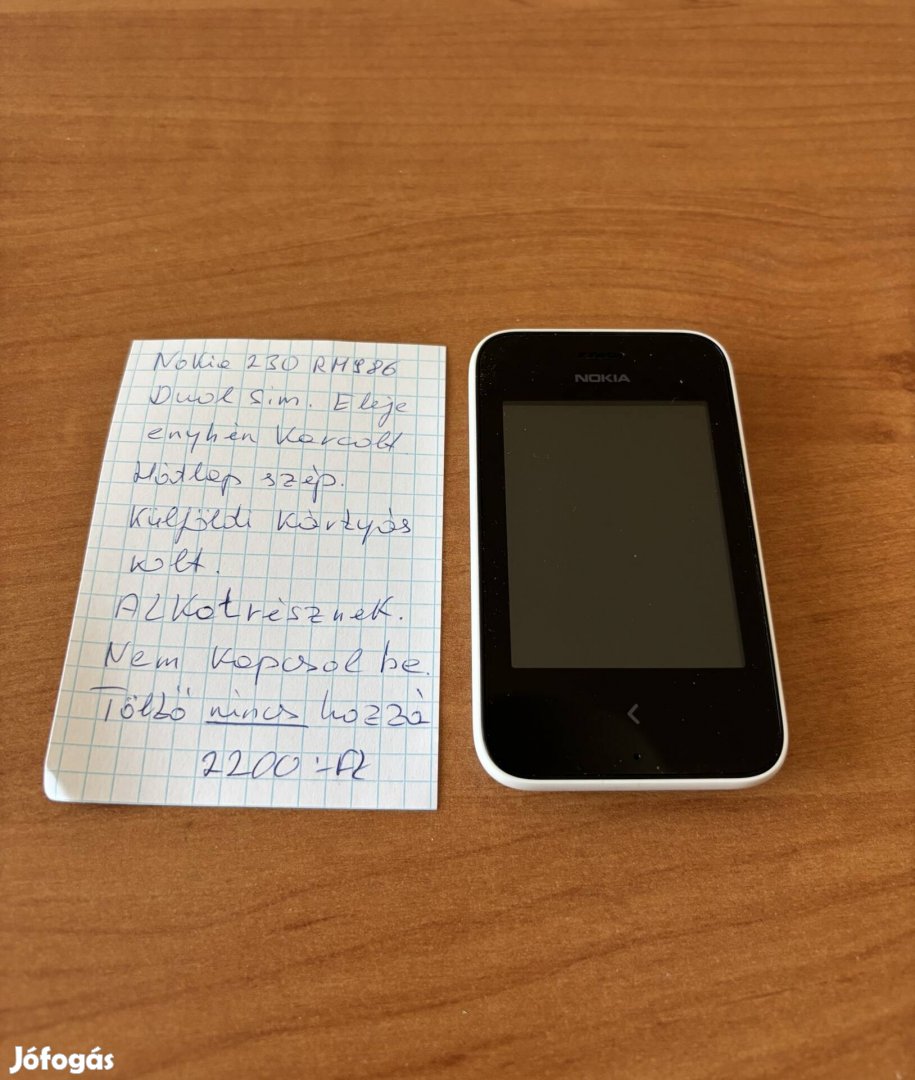 Nokia 230 RM986
Dual Sim. Eleje
enyhén Karcolt
Hátlap szép.
Külföldi Kártyás
volt.
ALKatrésznek.
Nem Kapcsol be.
Töltő nincs hozzá
2200.-Ft
NOKIA
Jófogás